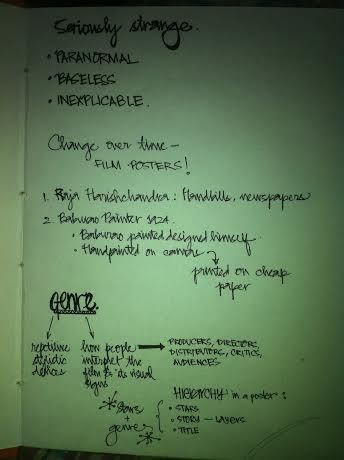 Seriously strange.
• PARANORMAL
• BASELESS
• INEXPLICABLE.
Change over time —
FILM POSTERS!
1. Raja Harishchandra: Handbills, newspapers
2. Baburao Painter 1924.
• Baburao painted designed himself.
• Handpainted on canvas
printed on cheap
paper
genre.
repetitive
artistic
devices
how people
interpret the
film & its visual
signs
PRODUCERS, DIRECTORS,
DISTRIBUTORS, CRITICS,
AUDIENCES
HIERARCHY in a poster:
• STARS
• STORY — LAYERS
• TITLE
stars
+
genres